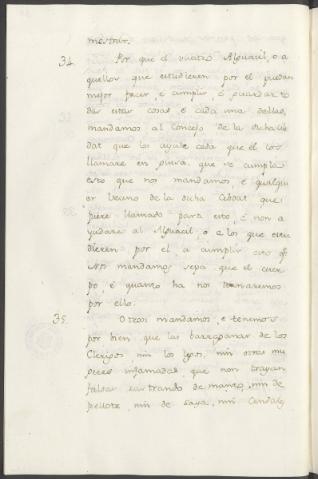 mostrar.
34. Por que el nuestro Alguacil, o a
quellos que estudieren por el puedan
mejor facer, e cumplir, e guardar to
das estas cosas, e cada una dellas,
mandamos al Concejo de la dicha cib
dat que los ayude cada que el los
llamare en guisa, que se cumpla
esto que nos mandamos, e qualqui
er vecino de la dicha Cibdat que
fuere llamado para esto, e non a
yudare al Alguacil, o a los que estu
dieren por el a cumplir esto q̃
Nos mandamos sepa que el cuer
po, e quanto ha nos tornaremos
por ello.
35. Otrosi mandamos, e tenemos
por bien, que las barraganas de los
Clerigos, nin los legos, nin otras mu
geres infamadas que non trayan
faldas rastrando de manto, nin de
pellote, nin de saya, nin Cendales